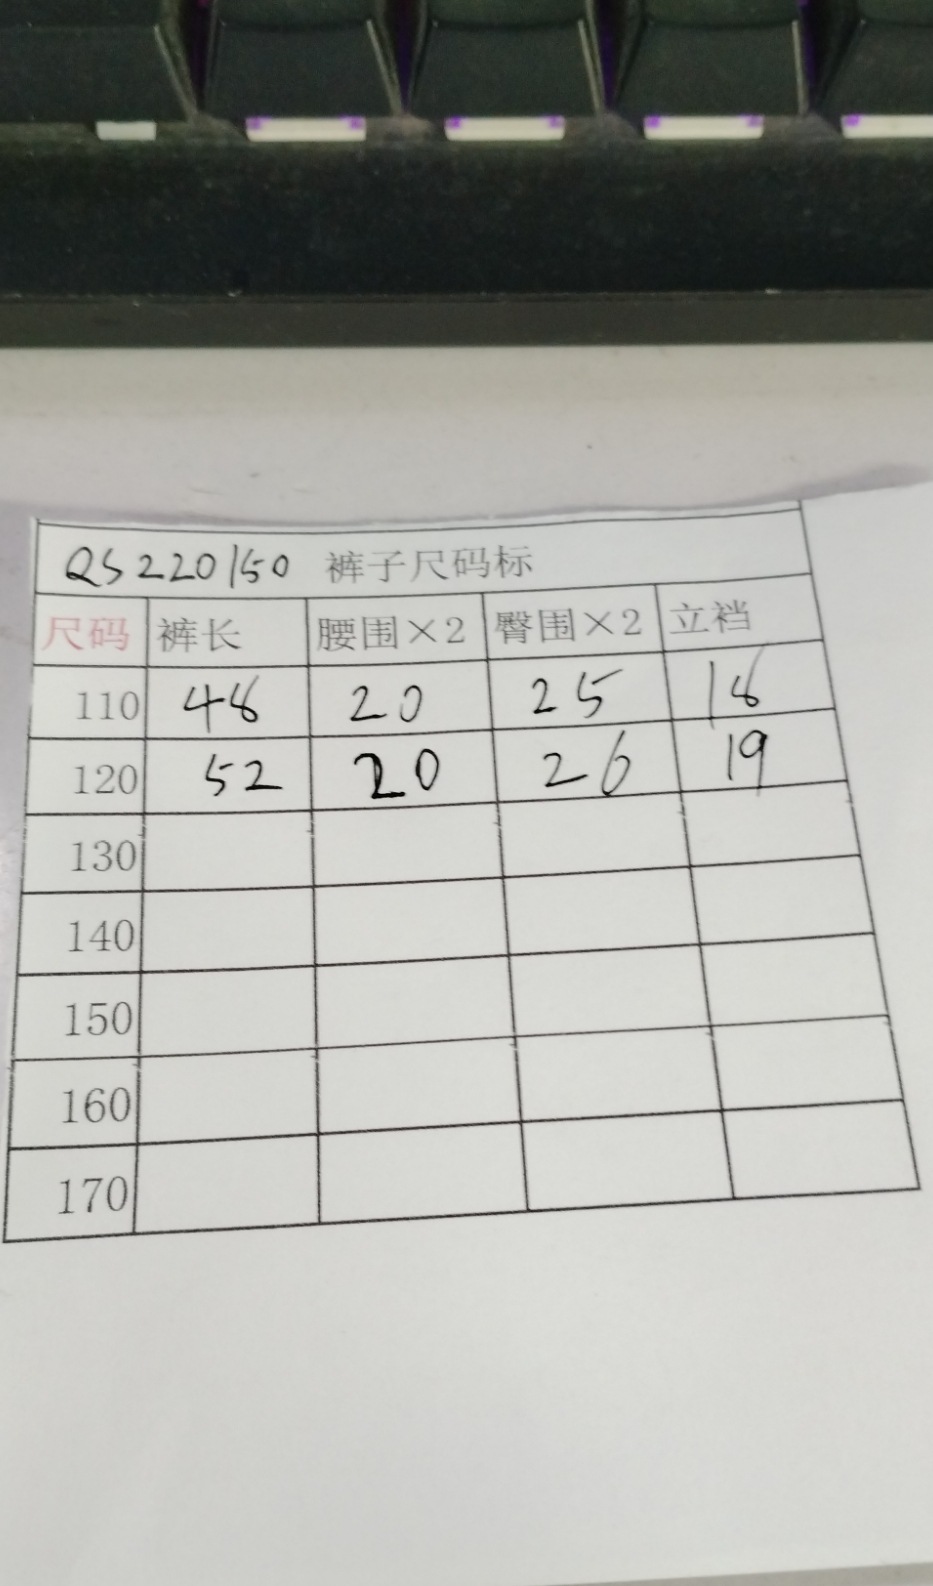 QS220150 裤子尺码标
尺码 裤长 腰围×2 臀围×2 立裆
110 48 20 25 18
120 52 20 26 19
130
140
150
160
170